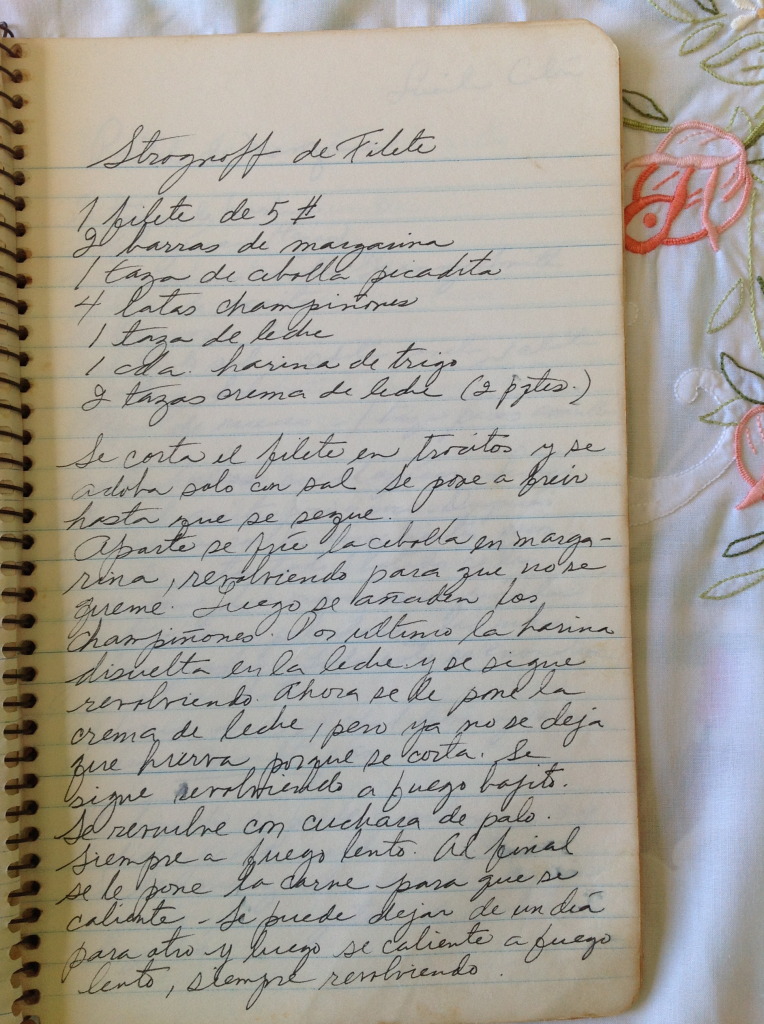 Strognoff de Filete
1 filete de 5 #
2 barras de margarina
1 taza de cebolla picadita
4 latas champiñones
1 taza de leche
1 cda. harina de trigo
2 tazas crema de leche (2 pqtes.)
Se corta el filete en trocitos y se
adoba solo con sal Se pone a freir
hasta que se seque.
Aparte se frie la cebolla en marga-
rina, revolviendo para que no se
queme. Luego se añaden los
champiñones. Por ultimo la harina
disuelta en la leche y se sigue
revolviendo. Ahora se le pone la
crema de leche, pero ya no se deja
que hierva porque se corta. Se
sigue revolviendo a fuego bajito.
Se revuelve con cuchara de palo.
Siempre a fuego lento. Al final
se le pone la carne para que se
caliente - Se puede dejar de un día
para otro y luego se caliente a fuego
lento, siempre revolviendo.